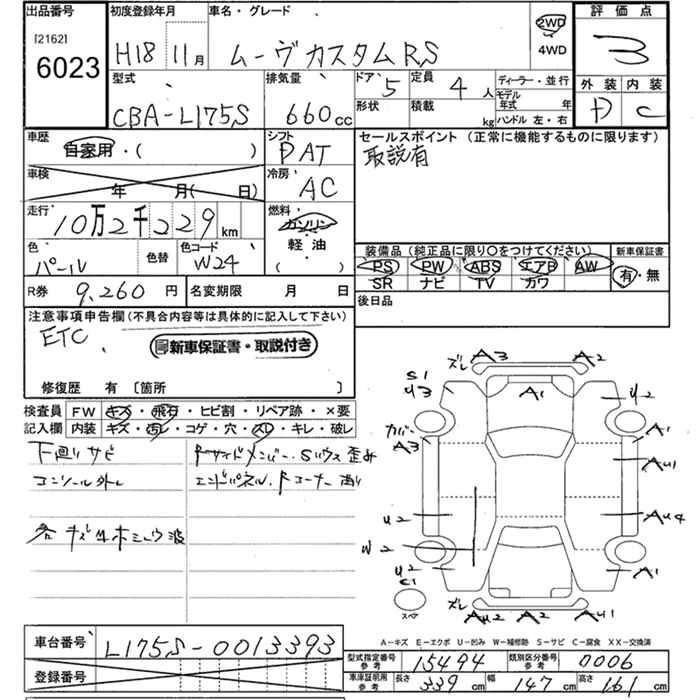 出品番号 初度登録年月 車名・グレード 評価点
[2162] 6023 H18 年 11月 ムーヴカスタムRS 2WD 4WD 3
型式 排気量 ドア 5 定員 4人 ディーラー・並行 外装 内装
CBA-L175S 660cc 形状 積載 kg モデル年式 年 ハンドル 左・右 D C
車歴 シフト セールスポイント (正常に機能するものに限ります)
自家用・( ) FAT 取説有
車検 年 月( 日) 冷房 AC
走行 10万2千229 km 燃料 ガソリン
色 色替 色コード 軽油 装備品 (純正品に限り○をつけてください) 新車保証書
パール W24 ( ) PS PW ABS エアB AW 有・無
SR ナビ TV カワ
R券 9,260円 名変期限 月 日 後日品
注意事項申告欄 (不具合内容等は具体的に記入して下さい)
ETC 新車保証書・取説付き
修復歴 有 〔箇所 〕
検査員 FW キズ・飛石・ヒビ割・リペア跡・×要
記入欄 内装 キズ・汚レ・コゲ・穴・スレ・キレ・破レ
下廻りサビ Fサイドメンバー・Sハウス歪み
コンソール外し エンドパネル・Fコーナー
各キズ
ズレ A3 A2
S1
U3 A1 U2
カバー A3 A1
AU1
U2 AU4
W2
U2 A1
C1 ズレ AU2 A2 AU1
スペア
A-キズ E-エクボ U-凹み W-補修跡 S-サビ C-腐食 XX-交換済
車台番号 L175S-0013393 型式指定番号 参考 15494 類別区分番号 参考 0006
登録番号 車庫証明用 参考 長さ 339cm 幅 147cm 高さ 161cm